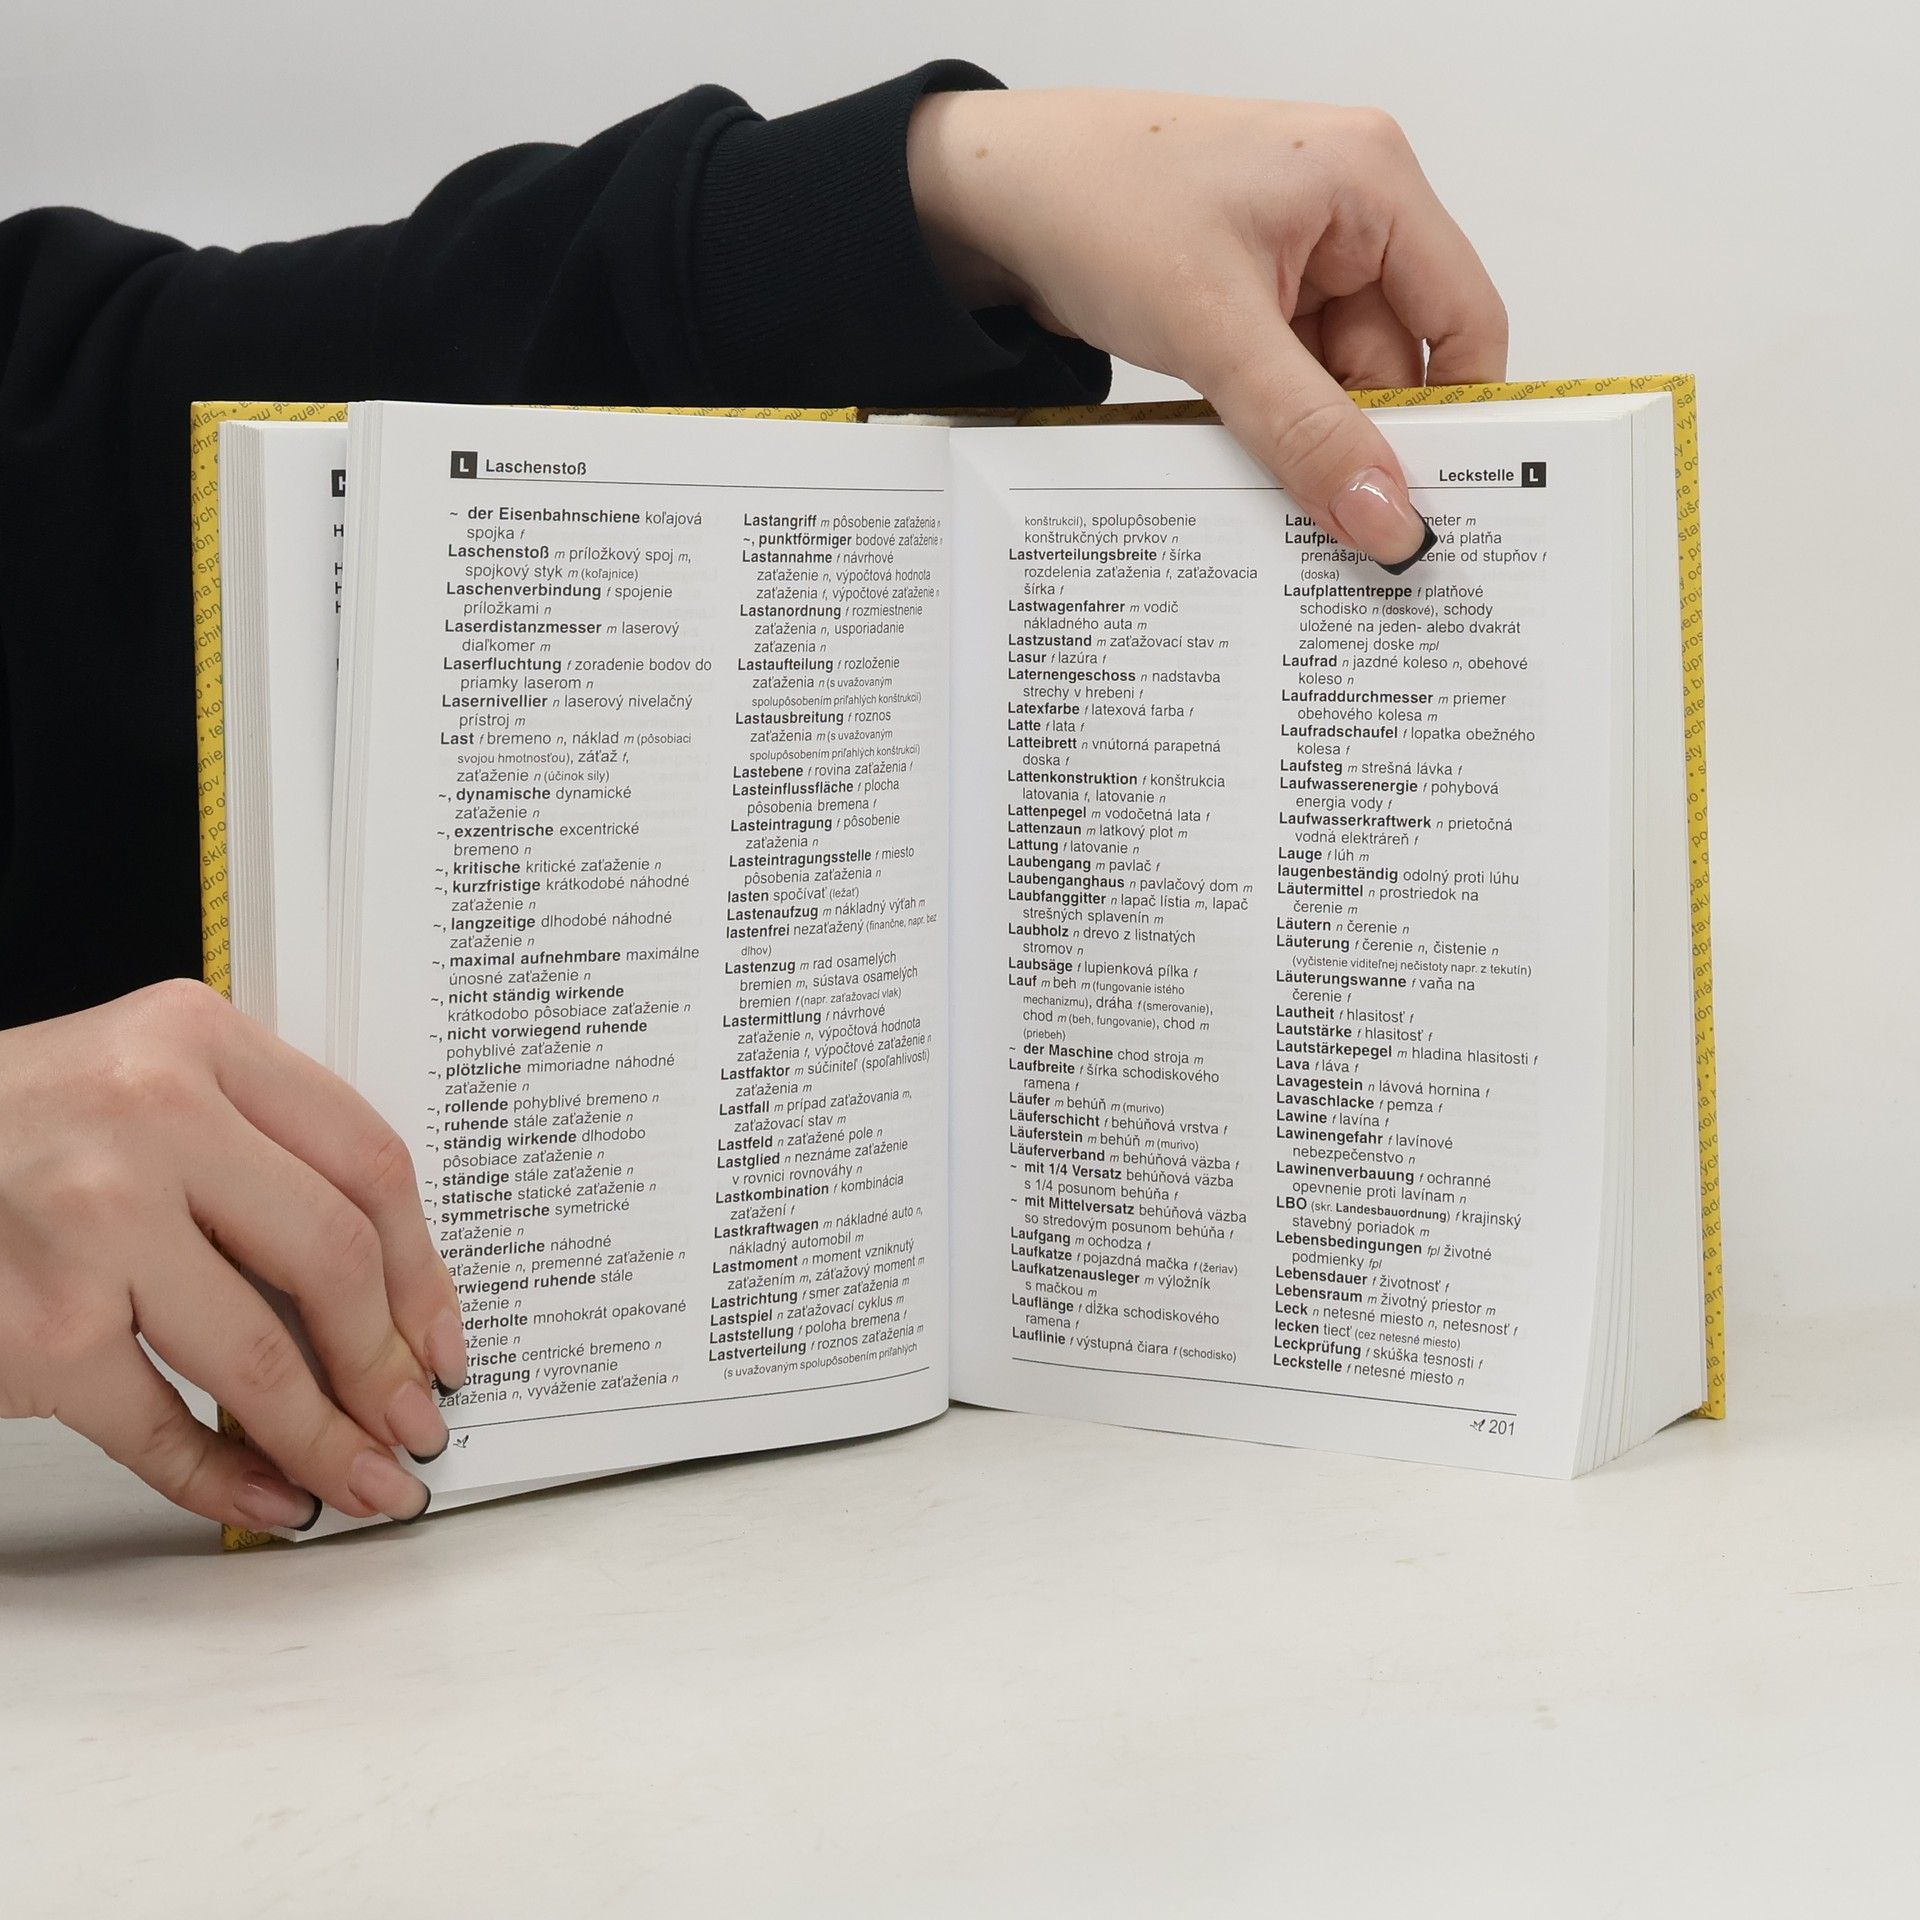 L Laschenstoß
~ der Eisenbahnschiene koľajová
spojka f
Laschenstoß m príložkový spoj m,
spojkový styk m (koľajnice)
Laschenverbindung f spojenie
príložkami n
Laserdistanzmesser m laserový
diaľkomer m
Laserfluchtung f zoradenie bodov do
priamky laserom n
Lasernivellier n laserový nivelačný
prístroj m
Last f bremeno n, náklad m (pôsobiaci
svojou hmotnosťou), záťaž f,
zaťaženie n (účinok sily)
~, dynamische dynamické
zaťaženie n
~, exzentrische excentrické
bremeno n
~, kritische kritické zaťaženie n
~, kurzfristige krátkodobé náhodné
zaťaženie n
~, langzeitige dlhodobé náhodné
zaťaženie n
~, maximal aufnehmbare maximálne
únosné zaťaženie n
~, nicht ständig wirkende
krátkodobo pôsobiace zaťaženie n
~, nicht vorwiegend ruhende
pohyblivé zaťaženie n
~, plötzliche mimoriadne náhodné
zaťaženie n
~, rollende pohyblivé bremeno n
~, ruhende stále zaťaženie n
~, ständig wirkende dlhodobo
pôsobiace zaťaženie n
~, ständige stále zaťaženie n
~, statische statické zaťaženie n
~, symmetrische symetrické
zaťaženie n
veränderliche náhodné
zaťaženie n, premenné zaťaženie n
ruhende stále
n
mnohokrát opakované
n
centrické bremeno n
f vyrovnanie
zaťaženia n, vyváženie zaťaženia n
Lastangriff m pôsobenie zaťaženia n
~, punktförmiger bodové zaťaženie n
Lastannahme f návrhové
zaťaženie n, výpočtová hodnota
zaťaženia f, výpočtové zaťaženie n
Lastanordnung f rozmiestnenie
zaťaženia n, usporiadanie
zaťazenia n
Lastaufteilung f rozloženie
zaťaženia n (s uvažovaným
spolupôsobením priľahlých konštrukcií)
Lastausbreitung f roznos
zaťaženia m (s uvažovaným
spolupôsobením priľahlých konštrukcií)
Lastebene f rovina zaťaženia f
Lasteinflussfläche f plocha
pôsobenia bremena f
Lasteintragung f pôsobenie
zaťaženia n
Lasteintragungsstelle f miesto
pôsobenia zaťaženia n
lasten spočívať (ležať)
Lastenaufzug m nákladný výťah m
lastenfrei nezaťažený (finančne, napr. bez
dlhov)
Lastenzug m rad osamelých
bremien m, sústava osamelých
bremien f (napr. zaťažovací vlak)
Lastermittlung f návrhové
zaťaženie n, výpočtová hodnota
zaťaženia f, výpočtové zaťaženie n
Lastfaktor m súčiniteľ (spoľahlivosti)
zaťaženia m
Lastfall m prípad zaťažovania m,
zaťažovací stav m
Lastfeld n zaťažené pole n
Lastglied n neznáme zaťaženie
v rovnici rovnováhy n
Lastkombination f kombinácia
zaťažení f
Lastkraftwagen m nákladné auto n,
nákladný automobil m
Lastmoment n moment vzniknutý
zaťažením m, záťažový moment m
Lastrichtung f smer zaťaženia m
Lastspiel n zaťažovací cyklus m
Laststellung f poloha bremena f
Lastverteilung f roznos zaťaženia m
(s uvažovaným spolupôsobením priľahlých
Leckstelle L
konštrukcií), spolupôsobenie
konštrukčných prvkov n
Lastverteilungsbreite f šírka
rozdelenia zaťaženia f, zaťažovacia
šírka f
Lastwagenfahrer m vodič
nákladného auta m
Lastzustand m zaťažovací stav m
Lasur f lazúra f
Laternengeschoss n nadstavba
strechy v hrebeni f
Latexfarbe f latexová farba f
Latte f lata f
Latteibrett n vnútorná parapetná
doska f
Lattenkonstruktion f konštrukcia
latovania f, latovanie n
Lattenpegel m vodočetná lata f
Lattenzaun m latkový plot m
Lattung f latovanie n
Laubengang m pavlač f
Laubenganghaus n pavlačový dom m
Laubfanggitter n lapač lístia m, lapač
strešných splavenín m
Laubholz n drevo z listnatých
stromov n
Laubsäge f lupienková pílka f
Lauf m beh m (fungovanie istého
mechanizmu), dráha f (smerovanie),
chod m (beh, fungovanie), chod m
(priebeh)
~ der Maschine chod stroja m
Laufbreite f šírka schodiskového
ramena f
Läufer m behúň m (murivo)
Läuferschicht f behúňová vrstva f
Läuferstein m behúň m (murivo)
Läuferverband m behúňová väzba f
~ mit 1/4 Versatz behúňová väzba
s 1/4 posunom behúňa f
~ mit Mittelversatz behúňová väzba
so stredovým posunom behúňa f
Laufgang m ochodza f
Laufkatze f pojazdná mačka f (žeriav)
Laufkatzenausleger m výložník
s mačkou m
Lauflänge f dĺžka schodiskového
ramena f
Lauflinie f výstupná čiara f (schodisko)
m
platňa
od stupňov f
(doska)
Laufplattentreppe f platňové
schodisko n (doskové), schody
uložené na jeden- alebo dvakrát
zalomenej doske mpl
Laufrad n jazdné koleso n, obehové
koleso n
Laufraddurchmesser m priemer
obehového kolesa m
Laufradschaufel f lopatka obežného
kolesa f
Laufsteg m strešná lávka f
Laufwasserenergie f pohybová
energia vody f
Laufwasserkraftwerk n prietočná
vodná elektráreň f
Lauge f lúh m
laugenbeständig odolný proti lúhu
Läutermittel n prostriedok na
čerenie m
Läutern n čerenie n
Läuterung f čerenie n, čistenie n
(vyčistenie viditeľnej nečistoty napr. z tekutín)
Läuterungswanne f vaňa na
čerenie f
Lautheit f hlasitosť f
Lautstärke f hlasitosť f
Lautstärkepegel m hladina hlasitosti f
Lava f láva f
Lavagestein n lávová hornina f
Lavaschlacke f pemza f
Lawine f lavína f
Lawinengefahr f lavínové
nebezpečenstvo n
Lawinenverbauung f ochranné
opevnenie proti lavínam n
LBO (skr. Landesbauordnung) f krajinský
stavebný poriadok m
Lebensbedingungen fpl životné
podmienky fpl
Lebensdauer f životnosť f
Lebensraum m životný priestor m
Leck n netesné miesto n, netesnosť f
lecken tiecť (cez netesné miesto)
Leckprüfung f skúška tesnosti f
Leckstelle f netesné miesto n
201